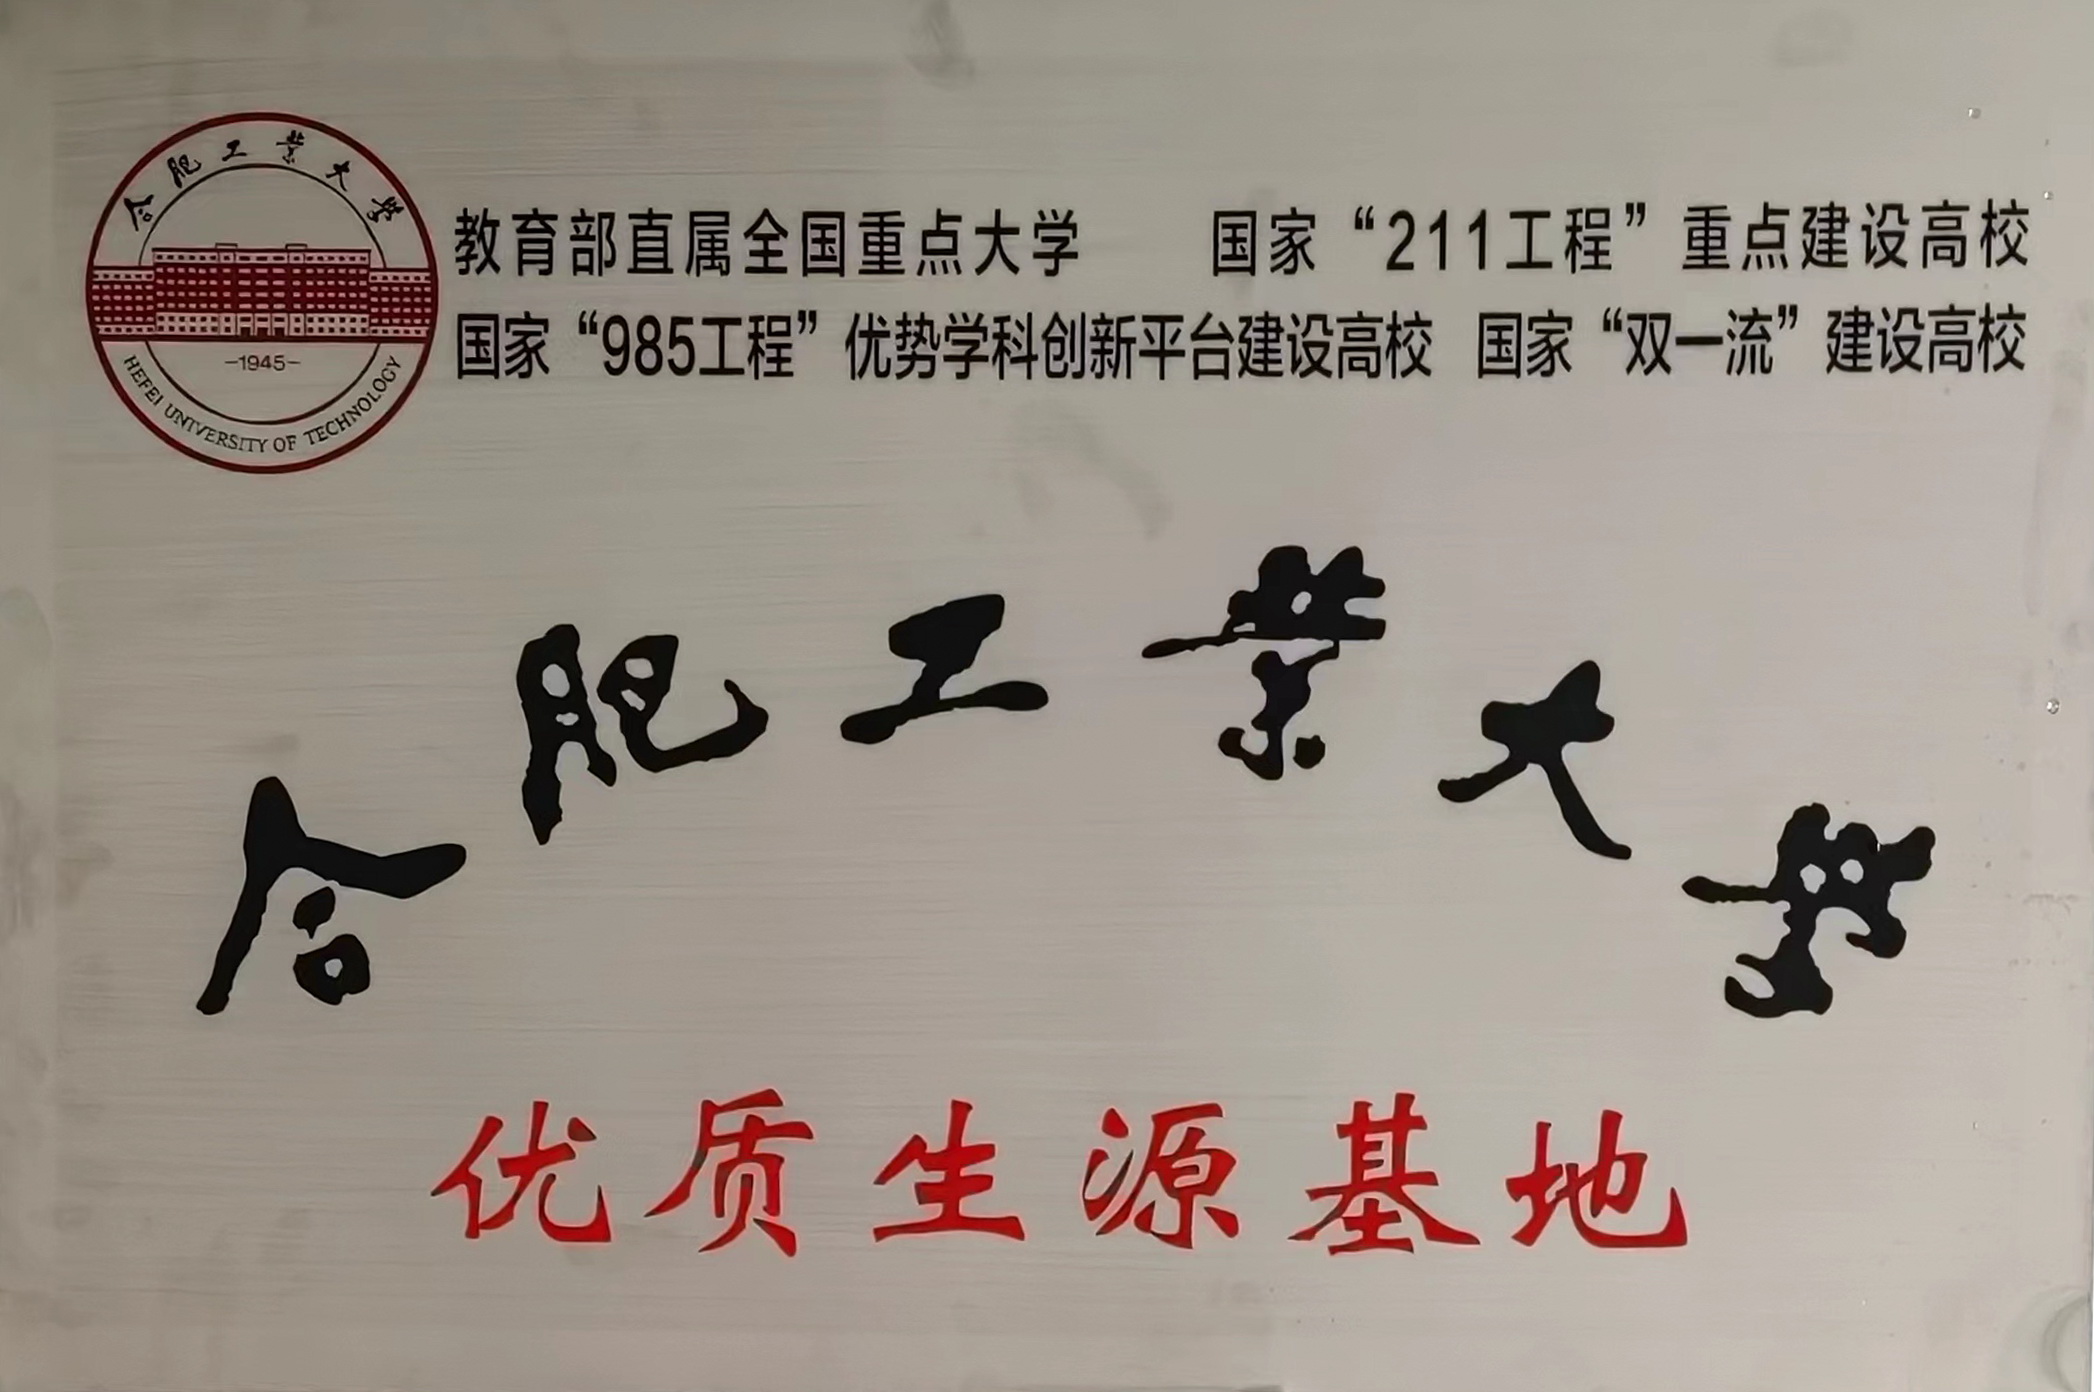 合肥工业大学
-1945-
HEFEI UNIVERSITY OF TECHNOLOGY
教育部直属全国重点大学 国家“211工程”重点建设高校
国家“985工程”优势学科创新平台建设高校 国家“双一流”建设高校
合肥工業大學
优质生源基地